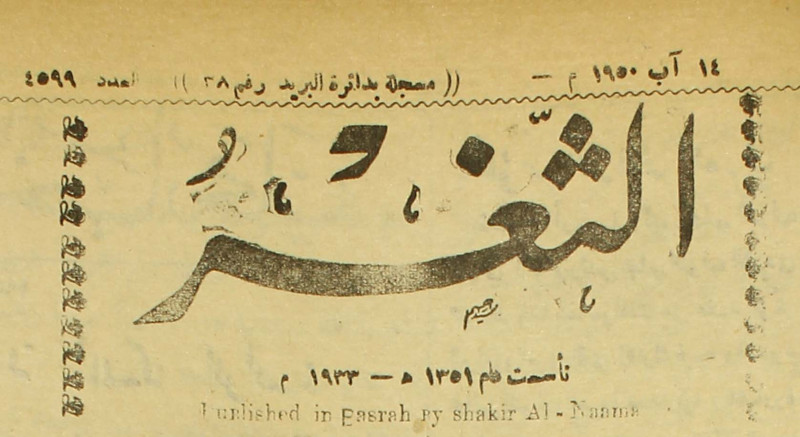 ١٤ آب ١٩٥٠ م – (( مسجلة بدائرة البريد رقم ٣٨ )) العدد ٤٥٩٩
الثَّغْرُ
تأسست عام ١٣٥١ ه – ١٩٣٣ م
Published in Basrah By shakir Al - Naama